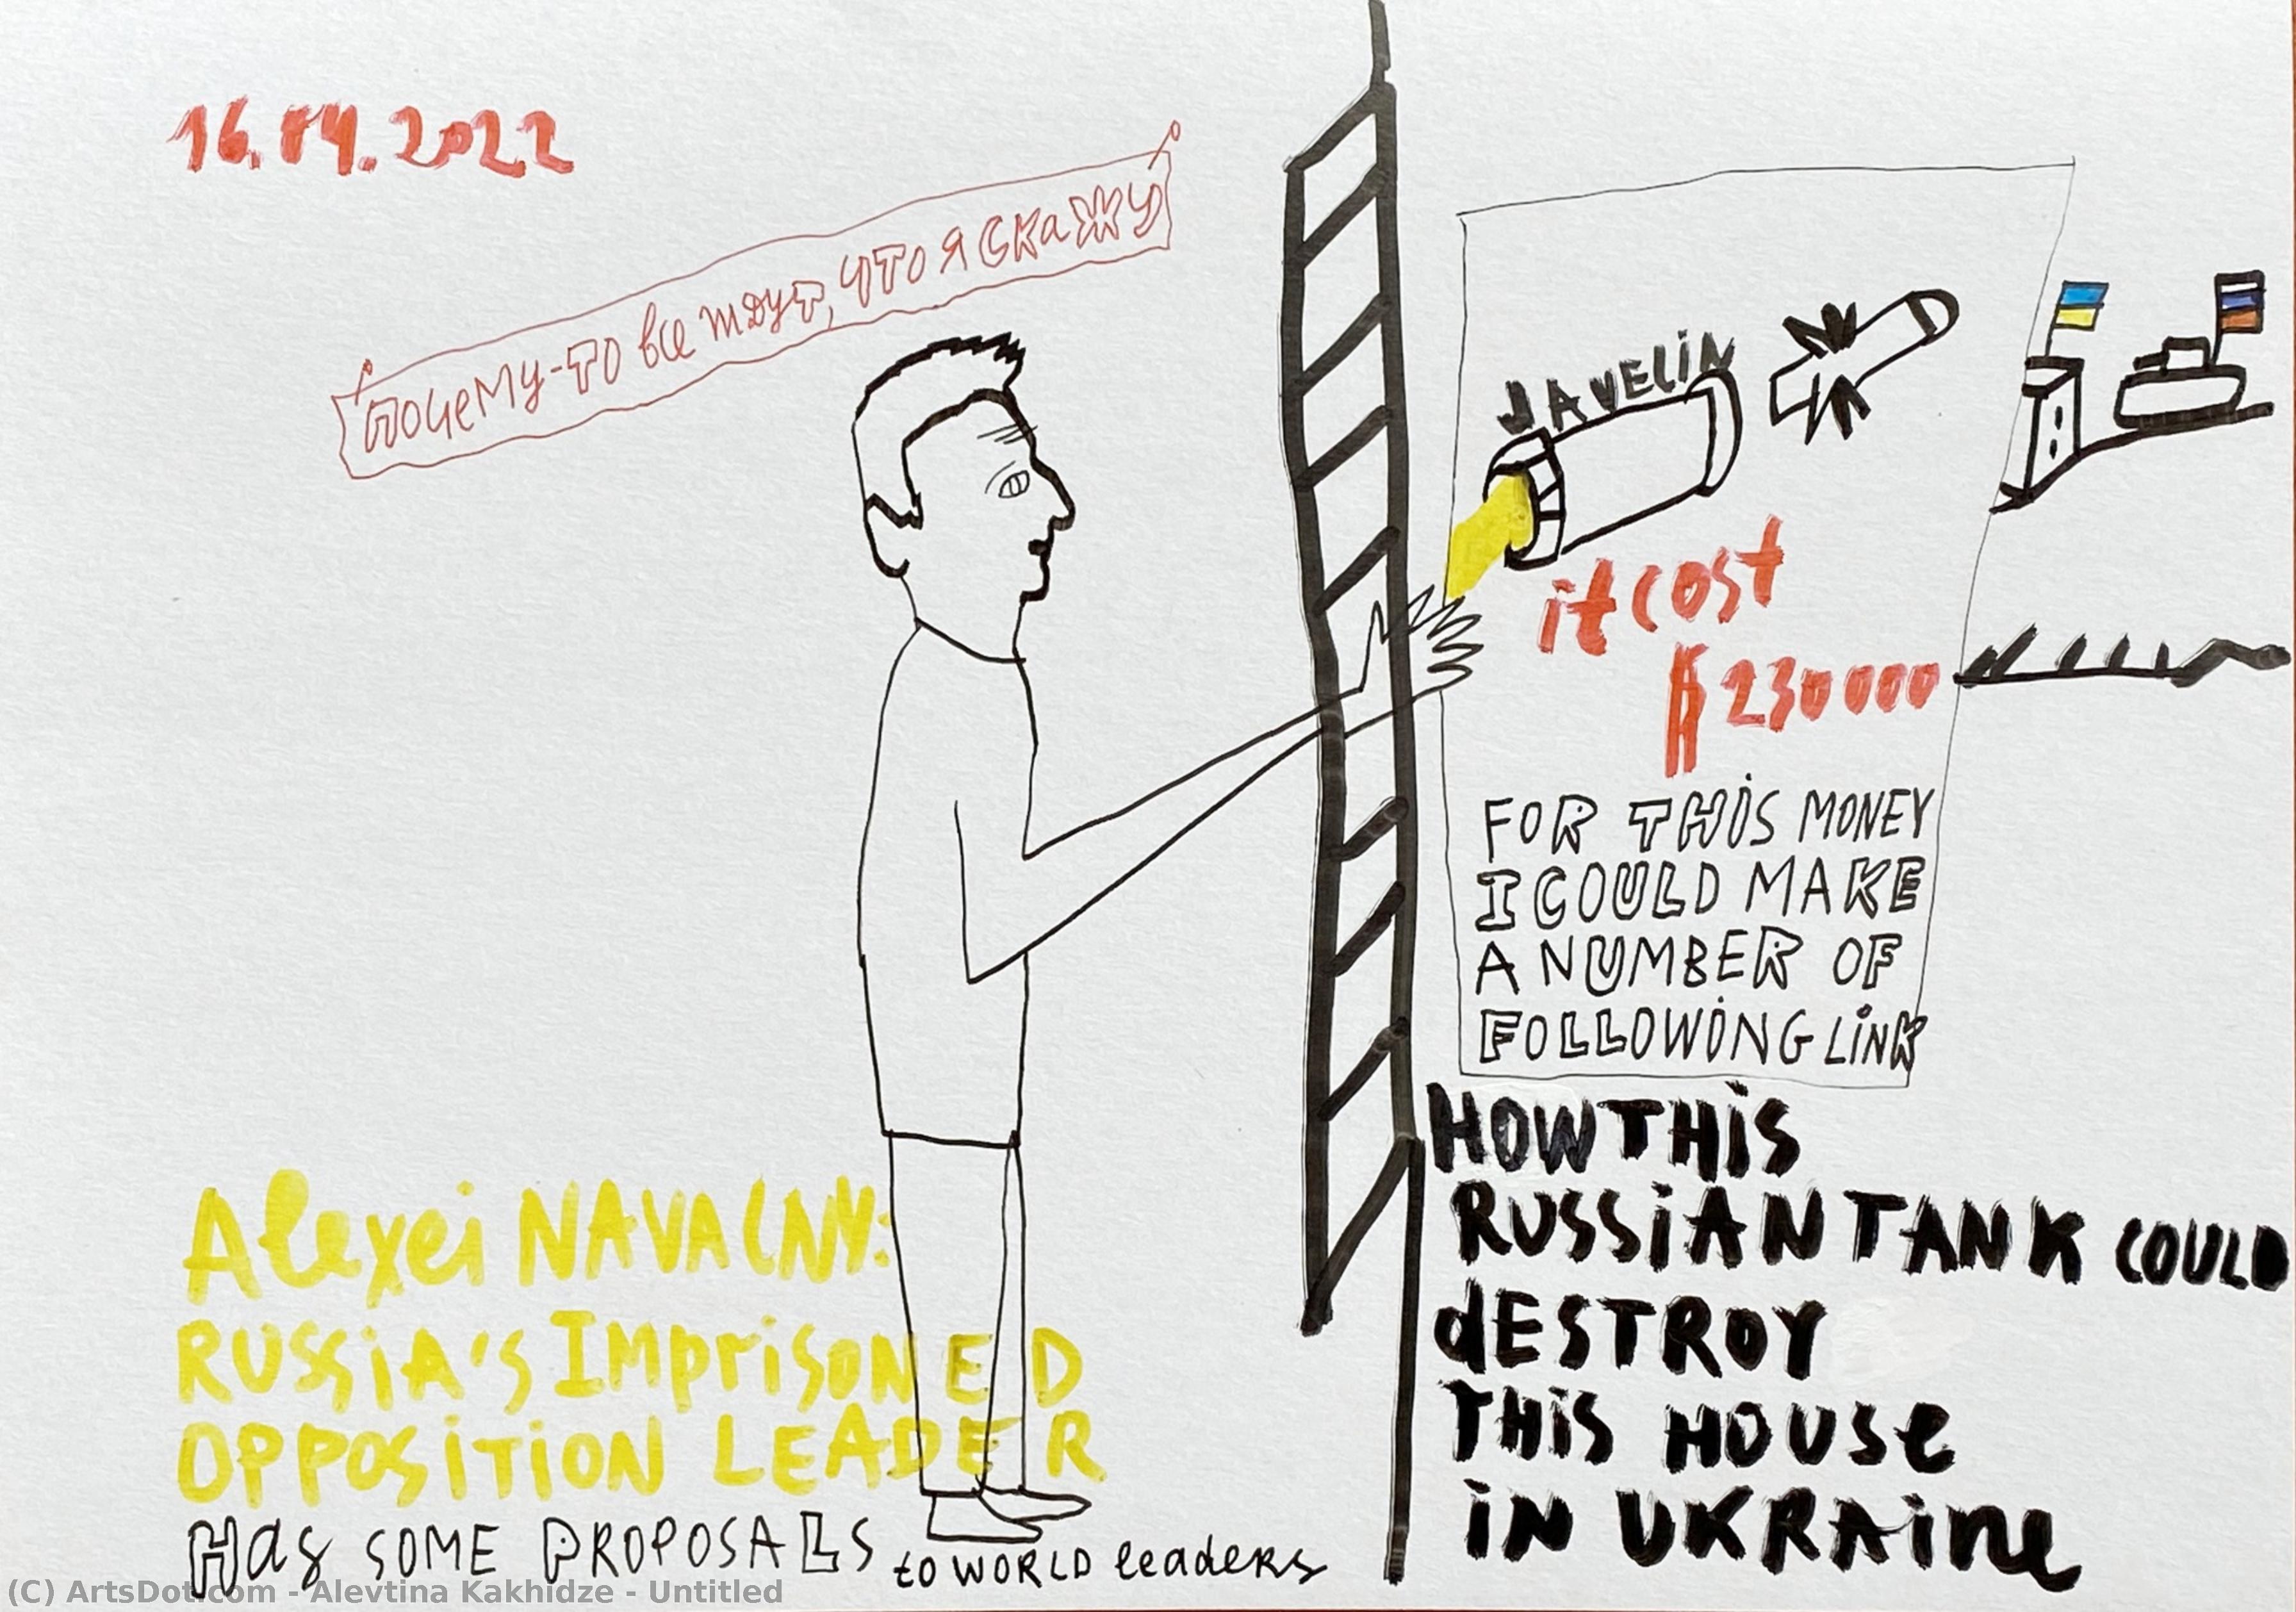 16.04.2022
почему-то все ждут, что я скажу
JAVELIN
it cost
$ 230000
FOR THIS MONEY
I COULD MAKE
A NUMBER OF
FOLLOWING LINK
HOW THIS
RUSSIAN TANK COULD
dESTROY
THIS HOUSE
IN UKRAINE
Alexei NAVALNY:
RUSSIA'S IMprISONED
OPPOSITION LEADER
Has SOME PROPOSALS to WORLD leaders
(C) ArtsDot.com - Alevtina Kakhidze - Untitled